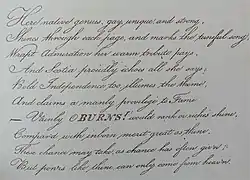 Here native genius, gay, unique and strong,
Shines through each page, and marks the tuneful song;
Wrapt Admiration her warm tribute pays,
And Scotia proudly echoes all she says;
Bold Independence too, illumes the theme,
And claims a manly privilege to Fame
— Vainly O BURNS! would rank or riches shine,
Compar'd with inborn merit great as thine.
These chance may take, as chance has often giv'n;
But pow'rs like thine can only come from heav'n.